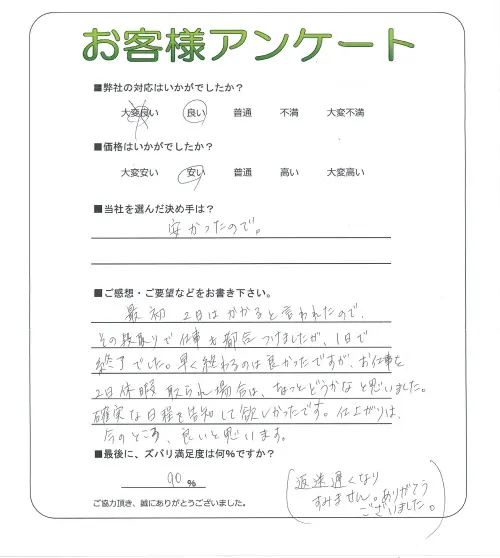 お客様アンケート
■弊社の対応はいかがでしたか？
大変良い 良い 普通 不満 大変不満
■価格はいかがでしたか？
大変安い 安い 普通 高い 大変高い
■当社を選んだ決め手は？
安かったので。
■ご感想・ご要望などをお書き下さい。
最初 2日はかかると言われたので、
その段取りで仕事を都合つけましたが、1日で
終了でした。早く終わるのは良かったですが、お仕事を
2日休暇 取られ場合は、なっとどうかなと思いました。
確実な日程を告知して欲しかったです。仕上がりは、
今のところ、良いと思います。
■最後に、ズバリ満足度は何％ですか？
90 ％
ご協力頂き、誠にありがとうございました。
返送遅くなり
すみません。ありがとう
ございました。